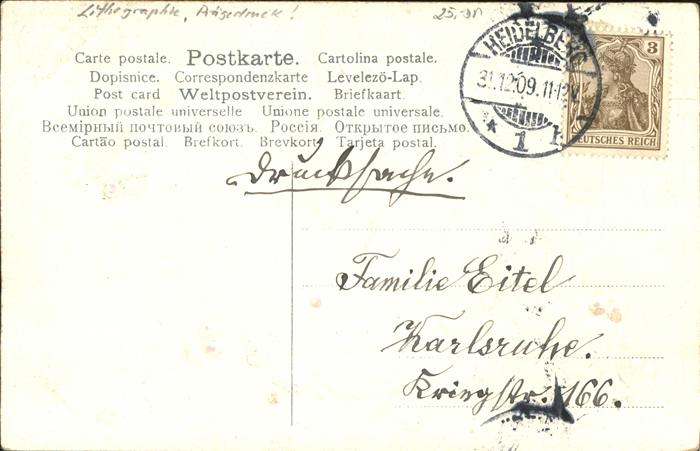 Lithographie, Prägedruck!
25,-
HEIDELBERG
31.12.09. 11-12V.
* 1 h
3
DEUTSCHES REICH
Carte postale. Postkarte. Cartolina postale.
Dopisnice. Correspondenzkarte Levelező-Lap.
Post card Weltpostverein. Briefkaart.
Union postale universelle Unione postale universale.
Всемірный почтовый союзъ. Россія. Открытое письмо.
Cartão postal. Brefkort. Brevkort. Tarjeta postal.
Drucksache.
Familie Eitel
Karlsruhe.
Kriegstr. 166.